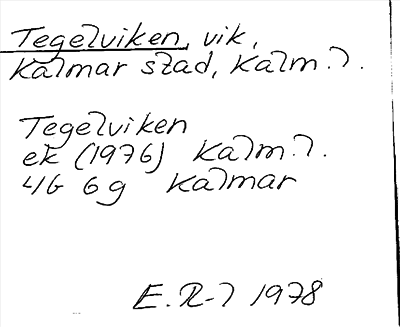 Tegelviken, vik,
Kalmar stad, Kalm.l.
Tegelviken
ek (1976) Kalm.l.
4G 6g Kalmar
E.R-l 1978